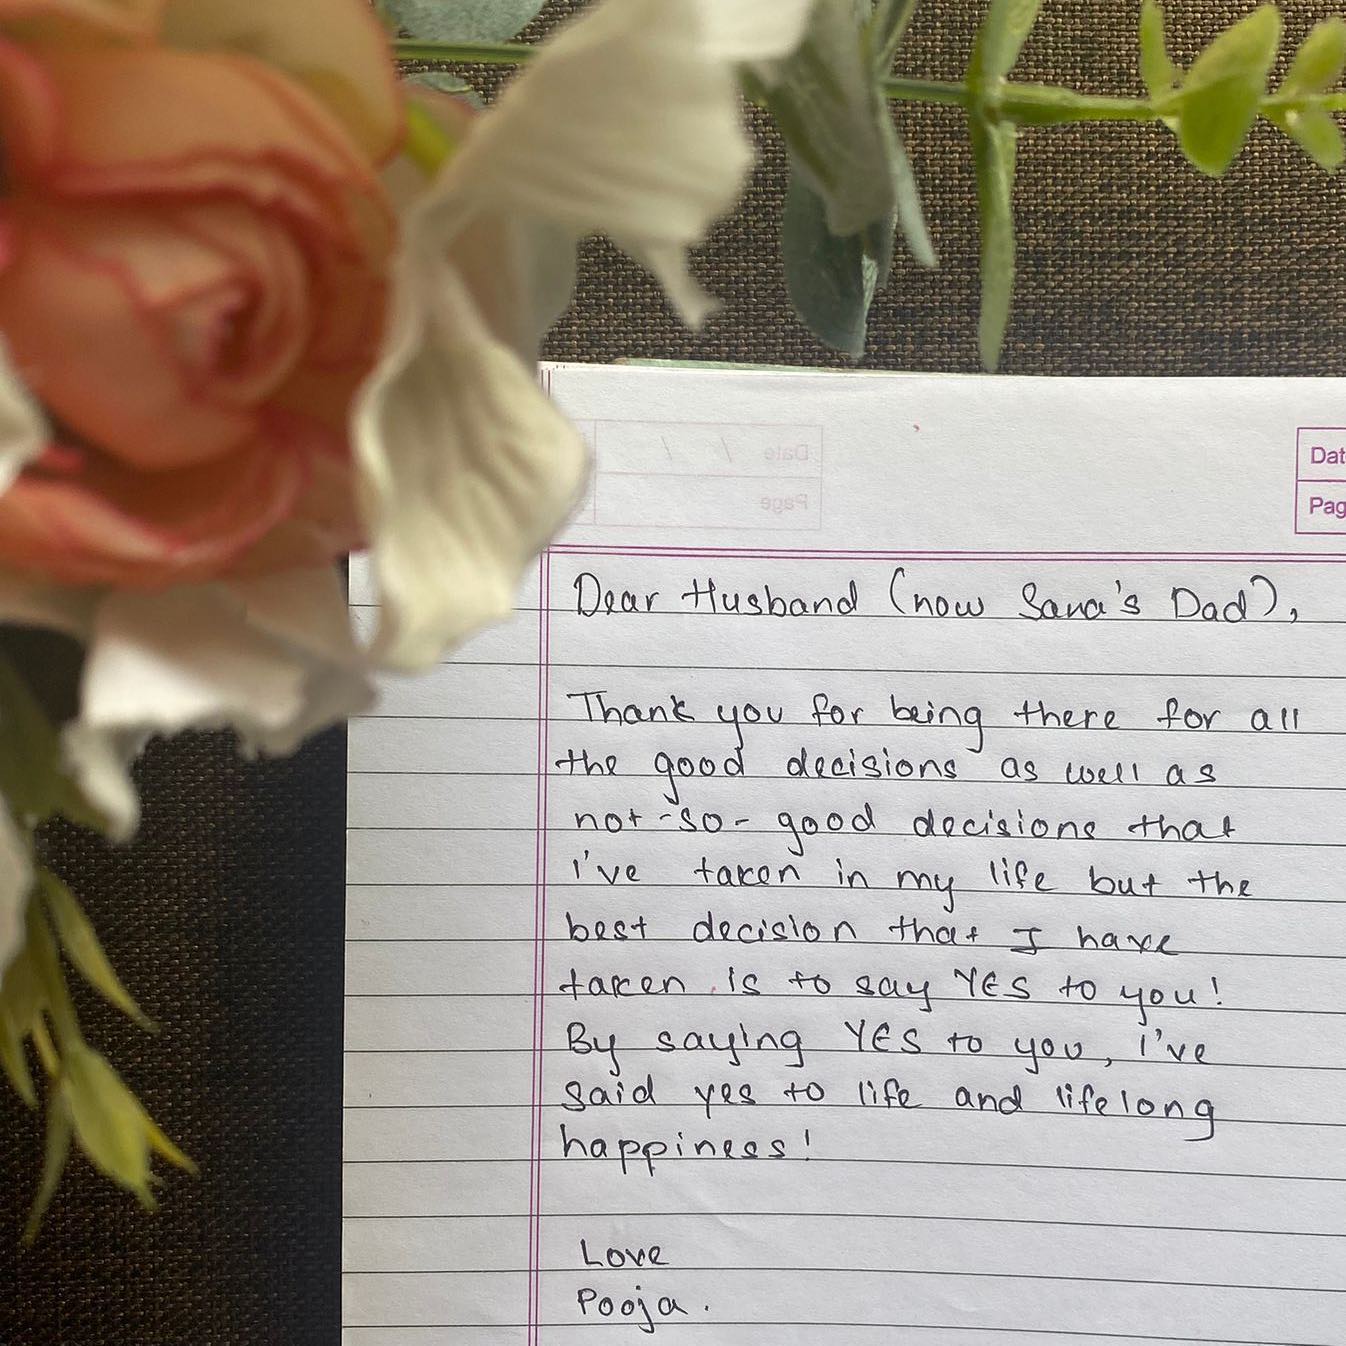 Dat
Pag
Dear Husband (now Sana's Dad),
Thank you for being there for all
the good decisions as well as
not-so-good decisions that
I've taken in my life but the
best decision that I have
taken is to say YES to you!
By saying YES to you, I've
said yes to life and lifelong
happiness!
Love
Pooja.